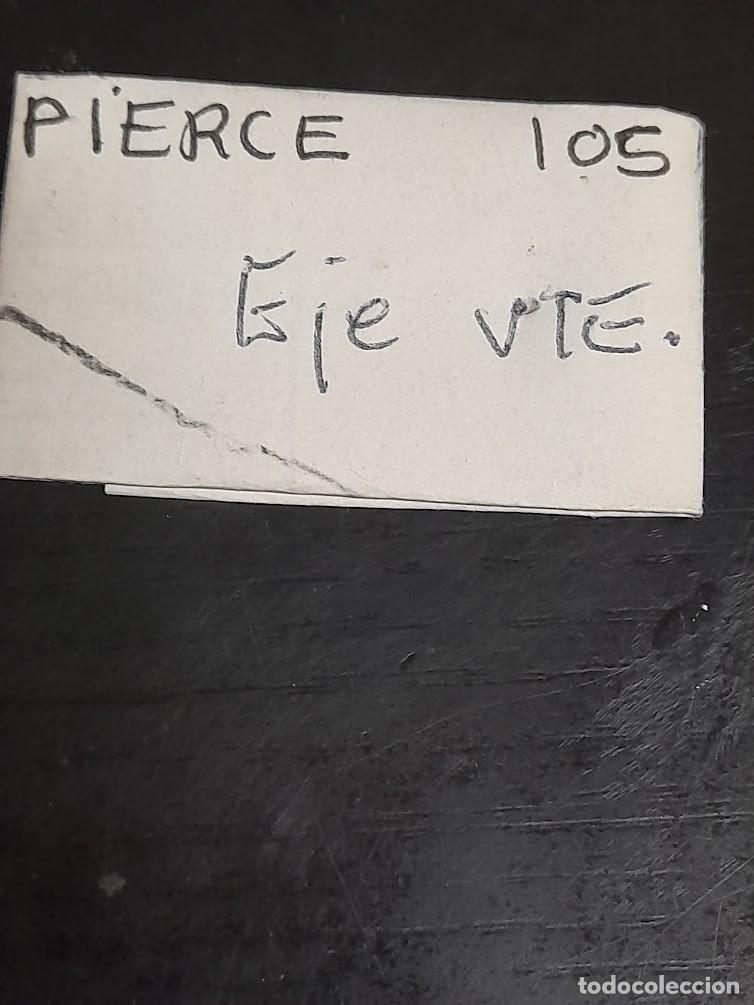 PIERCE 105
Eje VTE.
todocoleccion